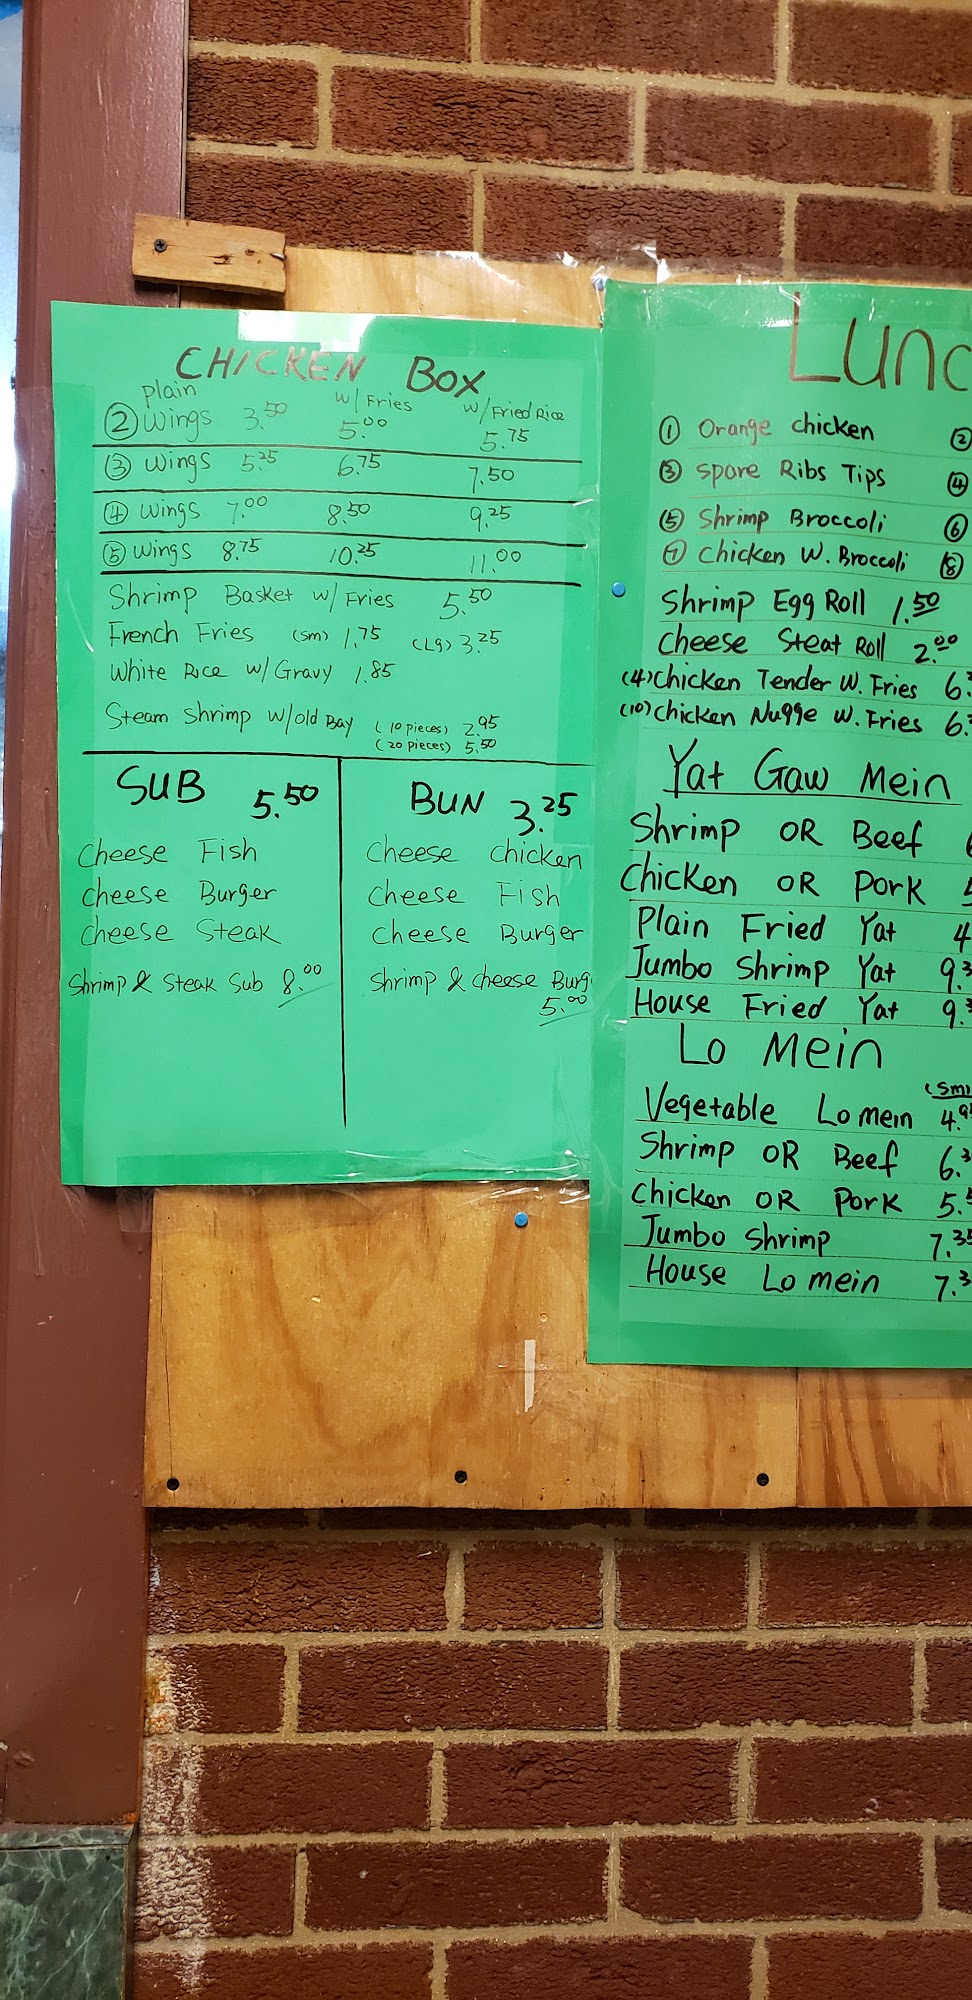 CHICKEN BOX
plain w/ Fries w/ Fried Rice
② Wings 3.50 5.00 5.75
③ Wings 5.25 6.75 7.50
④ Wings 7.00 8.50 9.25
⑤ Wings 8.75 10.25 11.00
Shrimp Basket w/ Fries 5.50
French Fries (sm) 1.75 (Lg) 3.25
White Rice w/ Gravy 1.85
Steam Shrimp w/old Bay (10 pieces) 2.95
(20 pieces) 5.50
SUB 5.50
Cheese Fish
Cheese Burger
Cheese Steak
Shrimp & Steak Sub 8.00
BUN 3.25
Cheese Chicken
Cheese Fish
Cheese Burger
Shrimp & Cheese Burg
5.00
Lunc
① Orange chicken ②
③ Spare Ribs Tips ④
⑤ Shrimp Broccoli ⑥
⑦ Chicken W. Broccoli ⑧
Shrimp Egg Roll 1.50
Cheese Steat Roll 2.00
(4) Chicken Tender W. Fries 6.
(10) Chicken Nugge W. Fries 6.
Yat Gaw Mein
Shrimp OR Beef
Chicken OR Pork
Plain Fried Yat 4
Jumbo Shrimp Yat 9.3
House Fried Yat 9.
Lo Mein
(Sm
Vegetable Lo mein 4.9
Shrimp OR Beef 6.3
Chicken OR Pork 5.
Jumbo Shrimp 7.35
House Lo mein 7.3